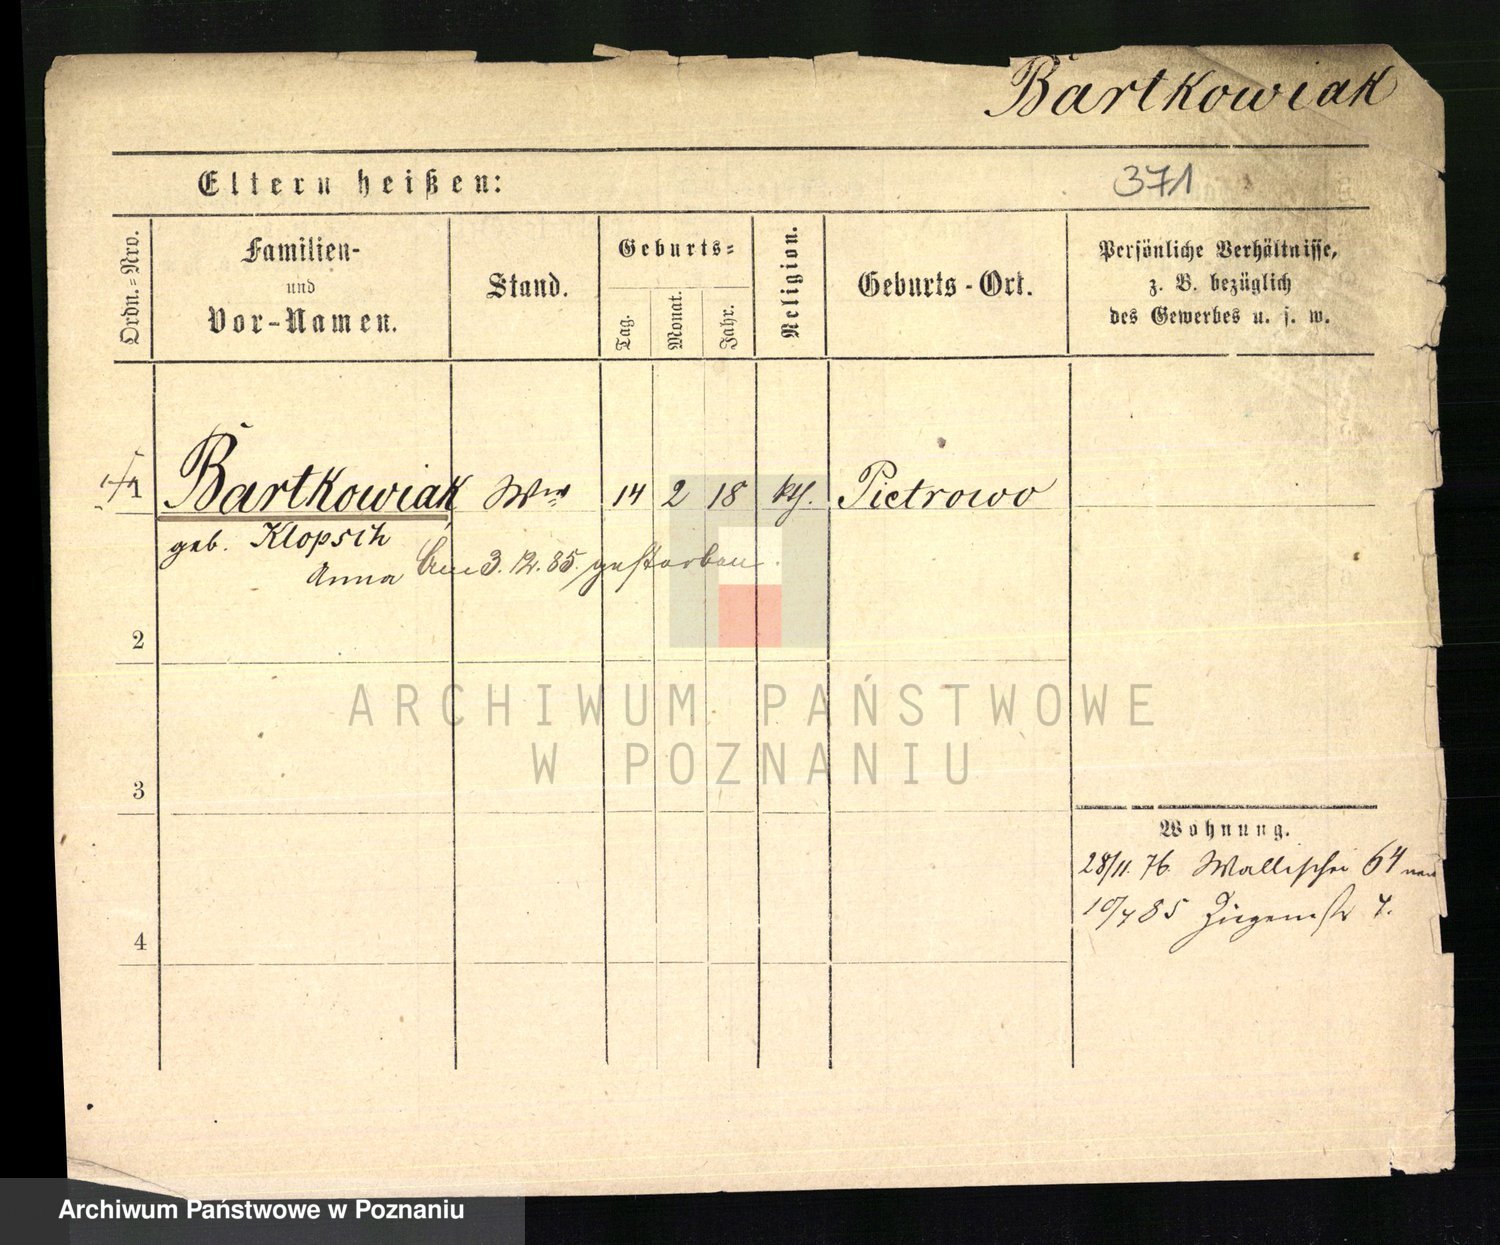 Bartkowiak
Eltern heißen:
371
Ordn.-Nro.
Familien-
und
Vor-Namen.
Stand.
Geburts-
Tag.
Monat.
Jahr.
Religion.
Geburts-Ort.
Persönliche Verhältnisse,
z. B. bezüglich
des Gewerbes u. s. w.
1 Bartkowiak Wwe 14 2 18 kth. Pietrowo
geb. Klopsch
Anna Am 3.12.85. gestorben.
2
ARCHIWUM PAŃSTWOWE
W POZNANIU
3
Wohnung.
28/11. 76. Wallischei 64
10/4 85 Ziegenstr 7.
4
Archiwum Państwowe w Poznaniu